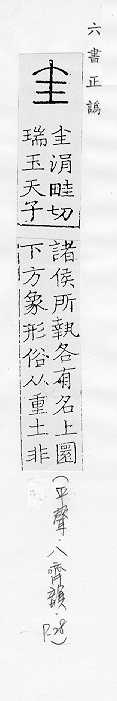 六書正譌
圭
圭涓畦切
瑞玉天子
諸侯所執各有名上圜
下方象形俗从重土非
(平聲·八齊韻·P.28)